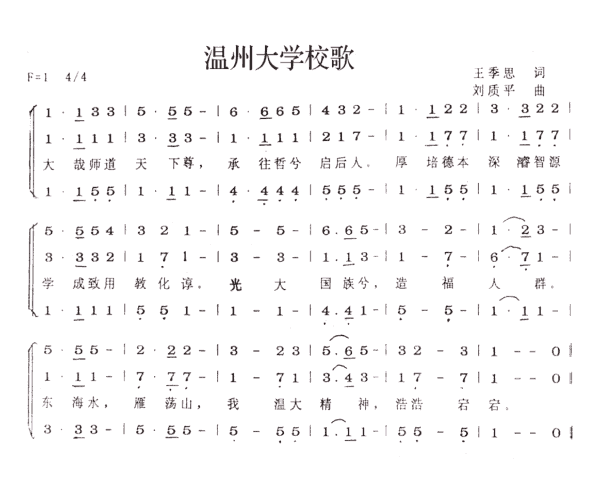 温州大学校歌
F=1 4/4
王季思 词
刘质平 曲
1 · 1 3 3 | 5 · 5 5 - | 6 · 6 6 5 | 4 3 2 - | 1 · 1 2 2 | 3 · 3 2 2 |
1 · 1 1 1 | 3 · 3 3 - | 1 · 1 1 1 | 2 1 7 - | 1 · 1 7 7 | 1 · 1 7 7 |
大 哉师道 天 下尊， 承 往哲兮 启后人。 厚 培德本 深 濬智源
1 · 1 5 5 | 1 · 1 1 - | 4 · 4 4 4 | 5 5 5 - | 1 · 1 5 5 | 1 · 1 5 5 |
5 · 5 5 4 | 3 2 1 | 5 - 5 - | 5 . 6 5 - | 3 - 2 - | 1 · 2 3 - |
3 · 3 3 2 | 1 7 1 | 3 - 3 - | 1 . 1 3 - | 1 - 7 - | 6 · 7 1 - |
学 成致用 教化谆。 光 大 国族兮， 造 福 人 群。
1 · 1 1 1 | 5 5 1 | 1 - 1 - | 4 . 4 1 - | 5 - 5 - | 1 · 1 1 - |
5 · 5 5 - | 2 · 2 2 - | 3 - 2 3 | 5 . 6 5 - | 3 2 - 3 | 1 - - 0 ‖
1 · 1 1 - | 7 · 7 7 - | 1 - 7 1 | 3 . 4 3 - | 1 7 - 7 | 1 - - 0 ‖
东 海水， 雁 荡山， 我 温大 精 神， 浩浩 宕宕。
3 · 3 3 - | 5 · 5 5 - | 5 - 5 5 | 1 . 1 1 - | 5 5 - 5 | 1 - - 0 ‖